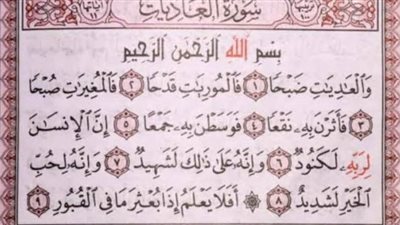 ترتيبها ١٠٠ سورة العاديات آياتها ١١
بِسْمِ اللَّهِ الرَّحْمَٰنِ الرَّحِيمِ
وَالْعَٰدِيَٰتِ ضَبْحًا ١ فَالْمُورِيَٰتِ قَدْحًا ٢ فَالْمُغِيرَٰتِ صُبْحًا
٣ فَأَثَرْنَ بِهِۦ نَقْعًا ٤ فَوَسَطْنَ بِهِۦ جَمْعًا ٥ إِنَّ الْإِنسَٰنَ
لِرَبِّهِۦ لَكَنُودٌ ٦ وَإِنَّهُۥ عَلَىٰ ذَٰلِكَ لَشَهِيدٌ ٧ وَإِنَّهُۥ لِحُبِّ
الْخَيْرِ لَشَدِيدٌ ٨ ۞ أَفَلَا يَعْلَمُ إِذَا بُعْثِرَ مَا فِي الْقُبُورِ ٩